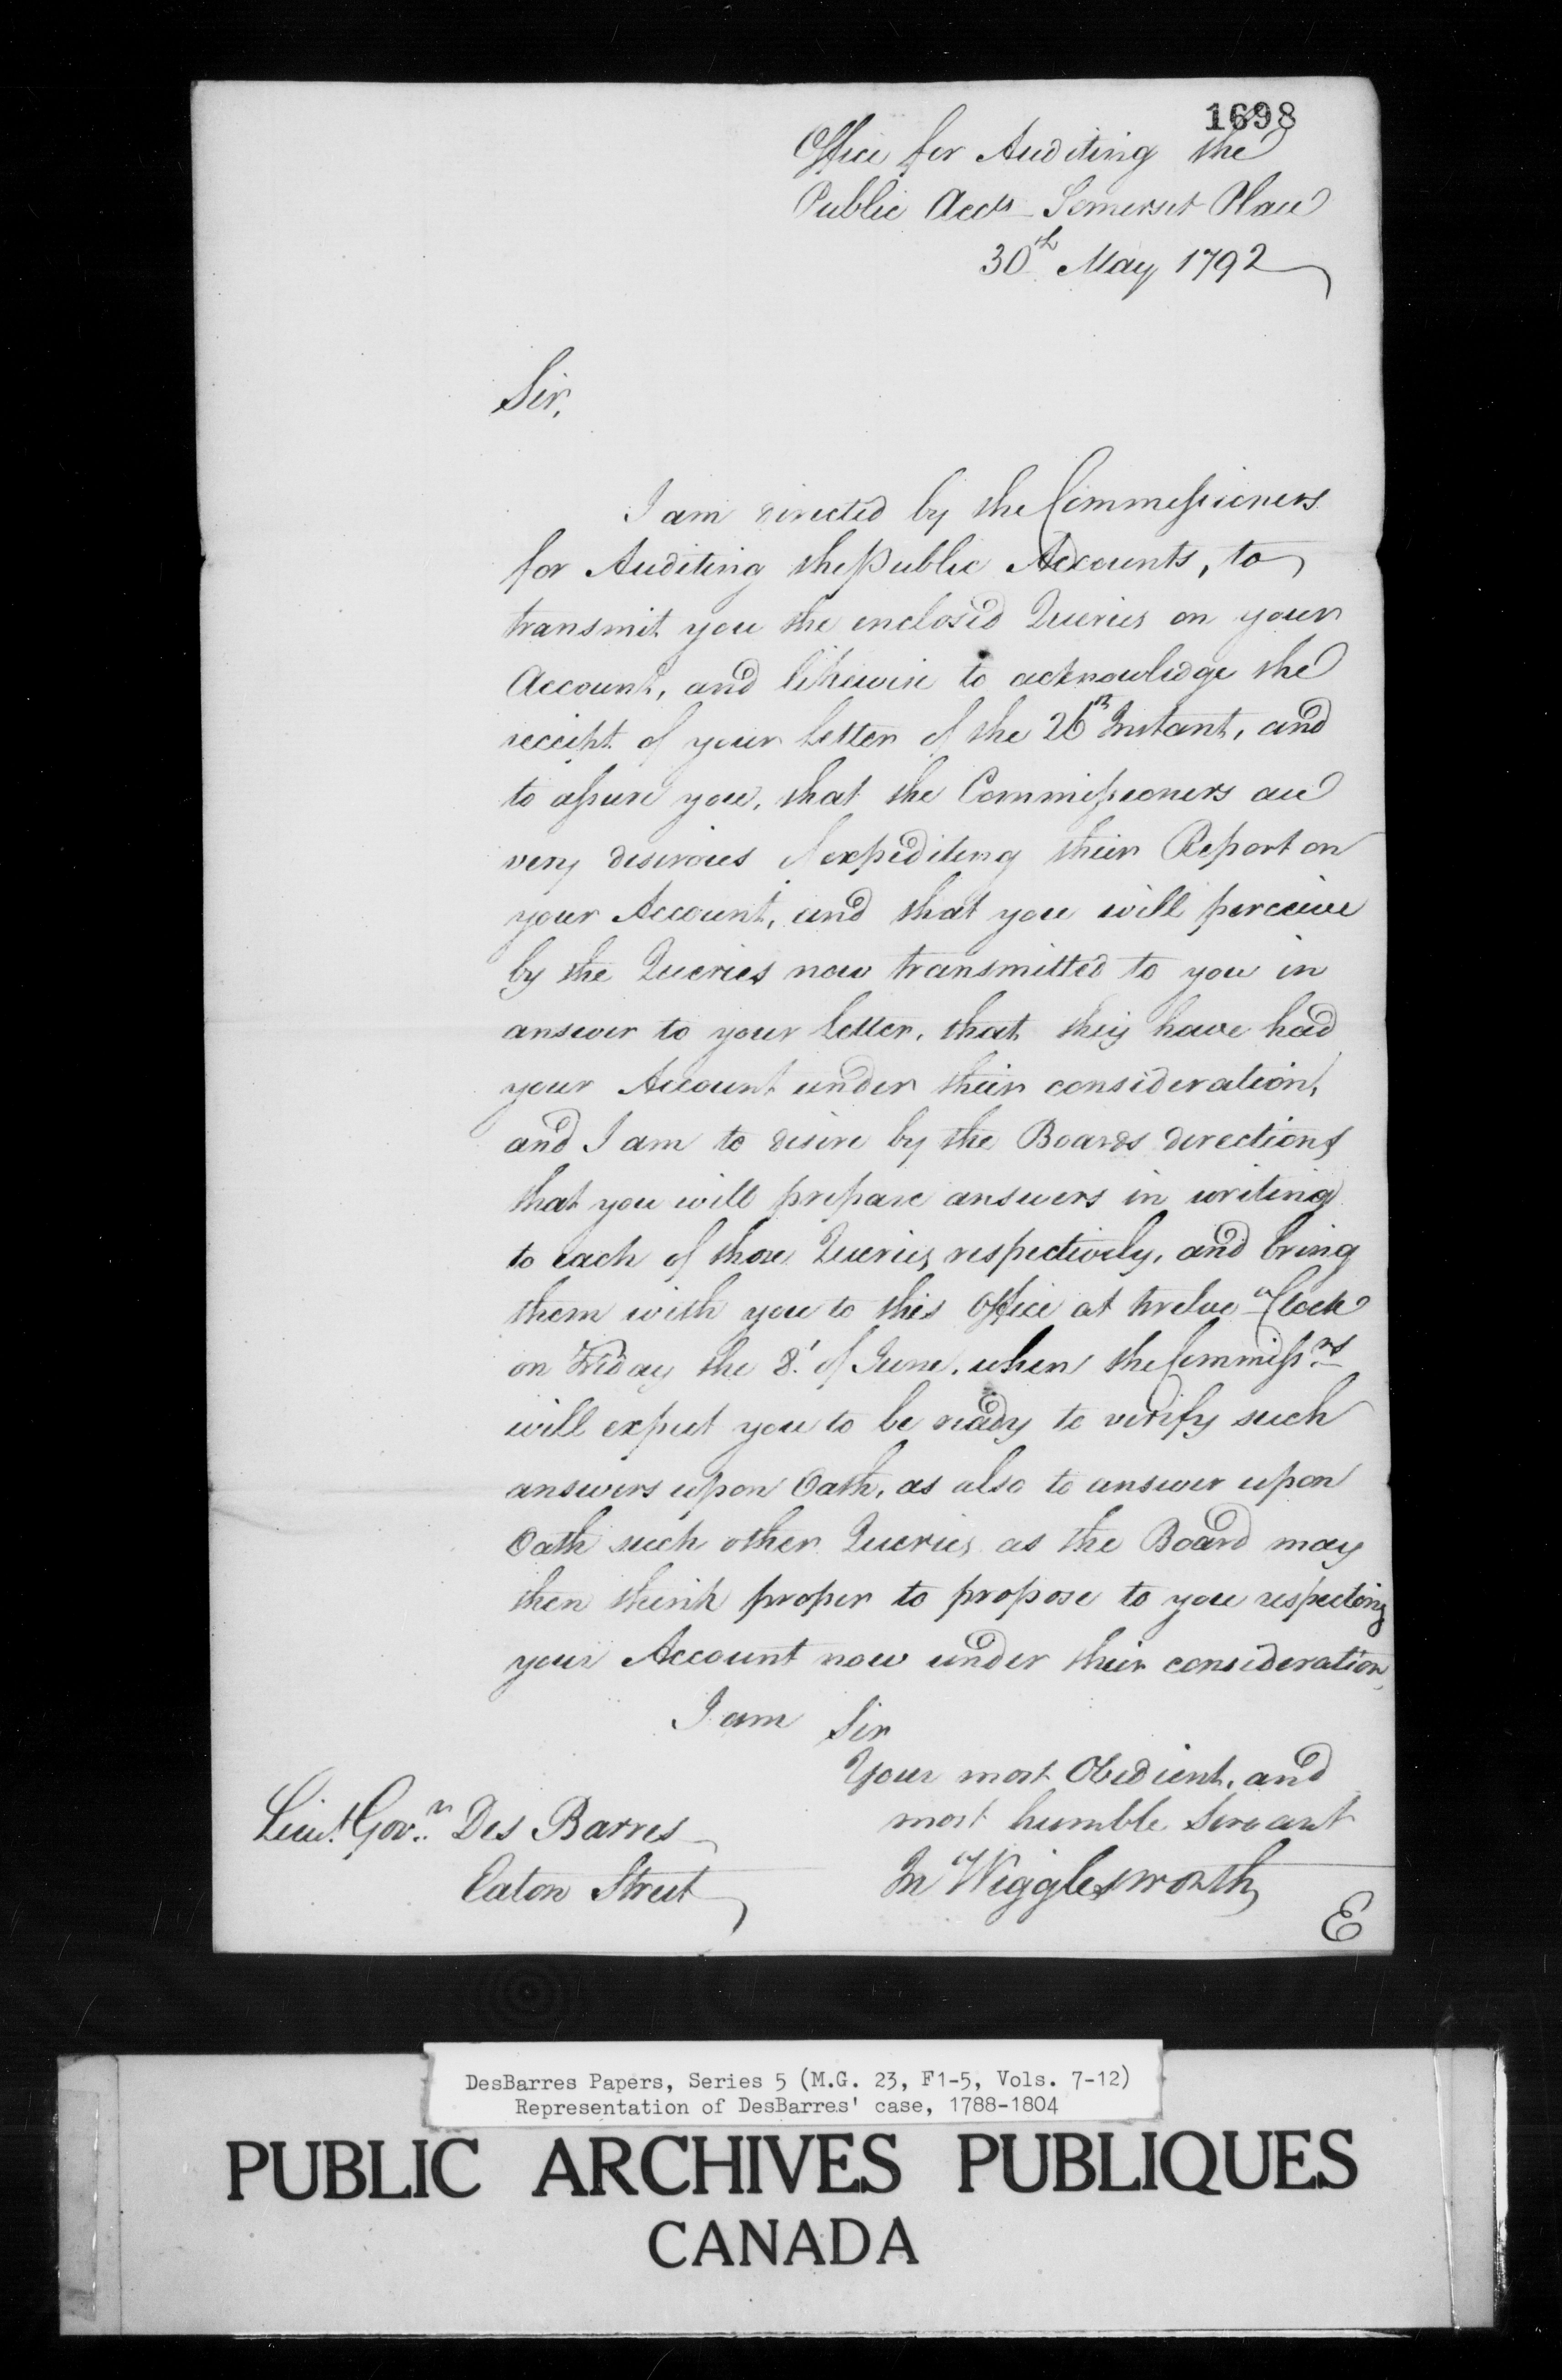 1698
Office for Auditing the
Public Accts Somerset Place
30th May 1792
Sir,
I am directed by the Commissioners
for Auditing the Public Accounts, to
transmit you the enclosed Queries on your
Account, and likewise to acknowledge the
receipt of your letter of the 26th Instant, and
to assure you, that the Commissioners are
very desirous of expediting their Report on
your Account, and that you will perceive
by the Queries now transmitted to you in
answer to your letter, that they have had
your Account under their consideration,
and I am to desire by the Boards directions
that you will prepare answers in writing
to each of those Queries respectively, and bring
them with you to this Office at twelve o'Clock
on Friday the 8t of June, when the Commissrs
will expect you to be ready to verify such
answers upon Oath, as also to answer upon
Oath such other Queries as the Board may
then think proper to propose to you respecting
your Account now under their consideration,
I am Sir
Your most Obedient, and
most humble Servant
Jn Wigglesworth
Lieut. Govr. Des Barres
Eaton Street
E
DesBarres Papers, Series 5 (M.G. 23, F1-5, Vols. 7-12)
Representation of DesBarres' case, 1788-1804
PUBLIC ARCHIVES PUBLIQUES
CANADA